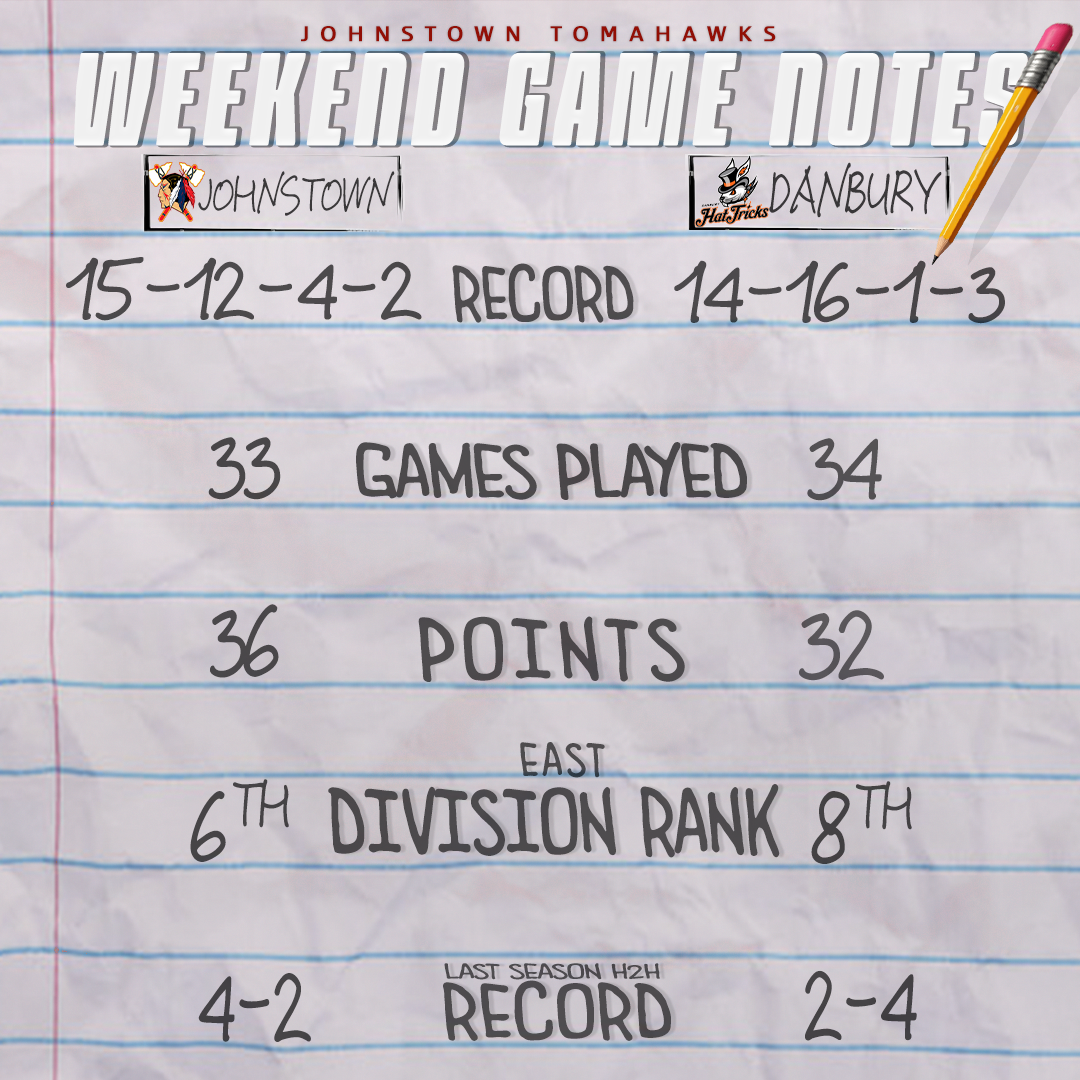 JOHNSTOWN TOMAHAWKS
WEEKEND GAME NOTES
JOHNSTOWN Hat Tricks DANBURY
15-12-4-2 RECORD 14-16-1-3
33 GAMES PLAYED 34
36 POINTS 32
EAST
6TH DIVISION RANK 8TH
LAST SEASON H2H
4-2 RECORD 2-4